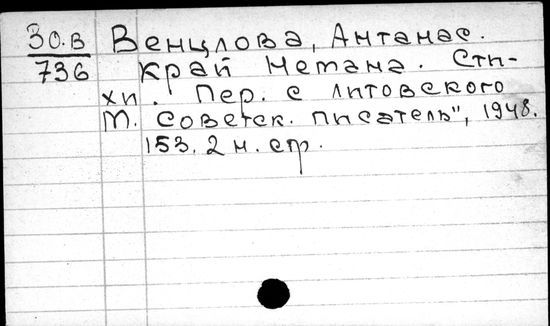 30.В Венцлова, Антанас.
736 Край Немана. Сти-
хи. Пер. с литовского
М. Советск. писатель", 1948.
153, 2 н. стр.